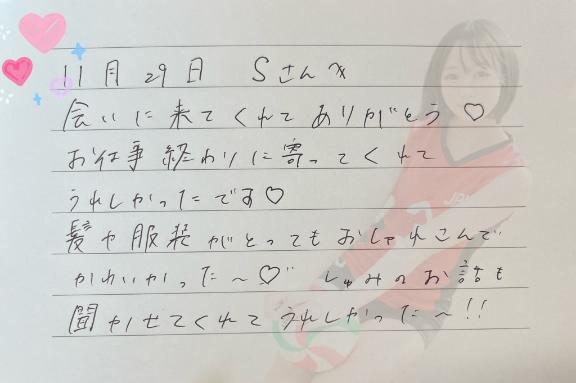 11月29日 Sさんへ
会いに来てくれてありがとう♡
お仕事終わりに寄ってくれて
うれしかったです♡
髪や服装がとってもおしゃれさんで
かわいかった〜♡ しゅみのお話も
聞かせてくれてうれしかった〜!!